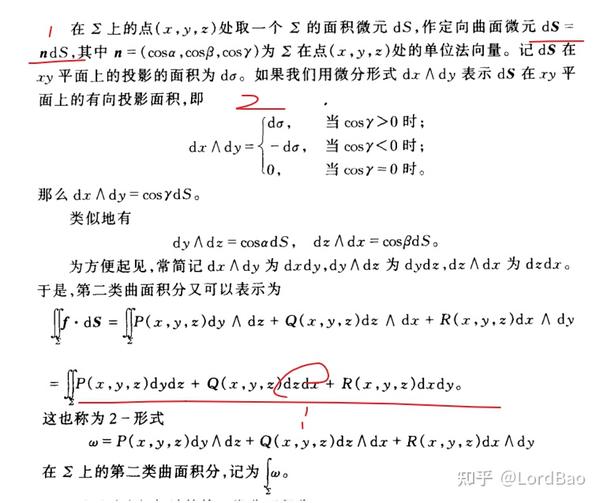 1 在 Σ 上的点(x,y,z)处取一个 Σ 的面积微元 dS,作定向曲面微元 dS =
ndS,其中 n = (cosα,cosβ,cosγ)为 Σ 在点(x,y,z)处的单位法向量。记 dS 在
xy 平面上的投影的面积为 dσ。如果我们用微分形式 dx∧dy 表示 dS 在 xy 平
面上的有向投影面积,即
2
dσ, 当 cosγ>0 时;
dx∧dy = { -dσ, 当 cosγ<0 时;
0, 当 cosγ=0 时。
那么 dx∧dy = cosγdS。
类似地有
dy∧dz = cosαdS, dz∧dx = cosβdS。
为方便起见,常简记 dx∧dy 为 dxdy,dy∧dz 为 dydz,dz∧dx 为 dzdx。
于是,第二类曲面积分又可以表示为
∬_Σ f·dS = ∬_Σ P(x,y,z)dy∧dz + Q(x,y,z)dz∧dx + R(x,y,z)dx∧dy
= ∬_Σ P(x,y,z)dydz + Q(x,y,z)dzdx + R(x,y,z)dxdy。
这也称为 2-形式
ω = P(x,y,z)dy∧dz + Q(x,y,z)dz∧dx + R(x,y,z)dx∧dy
在 Σ 上的第二类曲面积分,记为 ∫_Σ ω。
知乎 @LordBao